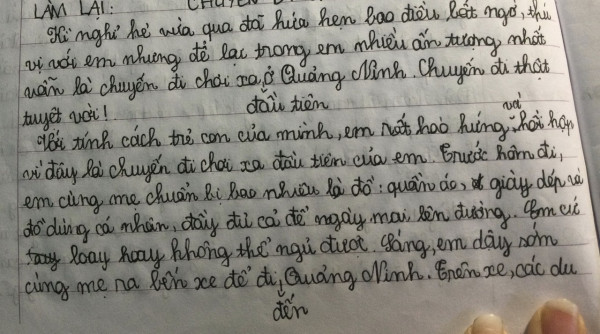 LÀM LẠI: CHUYẾN
Kì nghỉ hè vừa qua đã hứa hẹn bao điều bất ngờ, thú
vị với em nhưng để lại trong em nhiều ấn tượng nhất
vẫn là chuyến đi chơi xa ở Quảng Ninh. Chuyến đi thật
tuyệt vời!
đầu tiên
Với tính cách trẻ con của mình, em rất hào hứng và hồi hộp
vì đây là chuyến đi chơi xa đầu tiên của em. Trước hôm đi,
em cùng mẹ chuẩn bị bao nhiêu là đồ: quần áo, giày dép và
đồ dùng cá nhân, đầy đủ cả để ngày mai lên đường. Em cứ
loay hoay không thể ngủ được. Sáng, em dậy sớm
cùng mẹ ra bến xe để đi Quảng Ninh. Trên xe, các du
đến